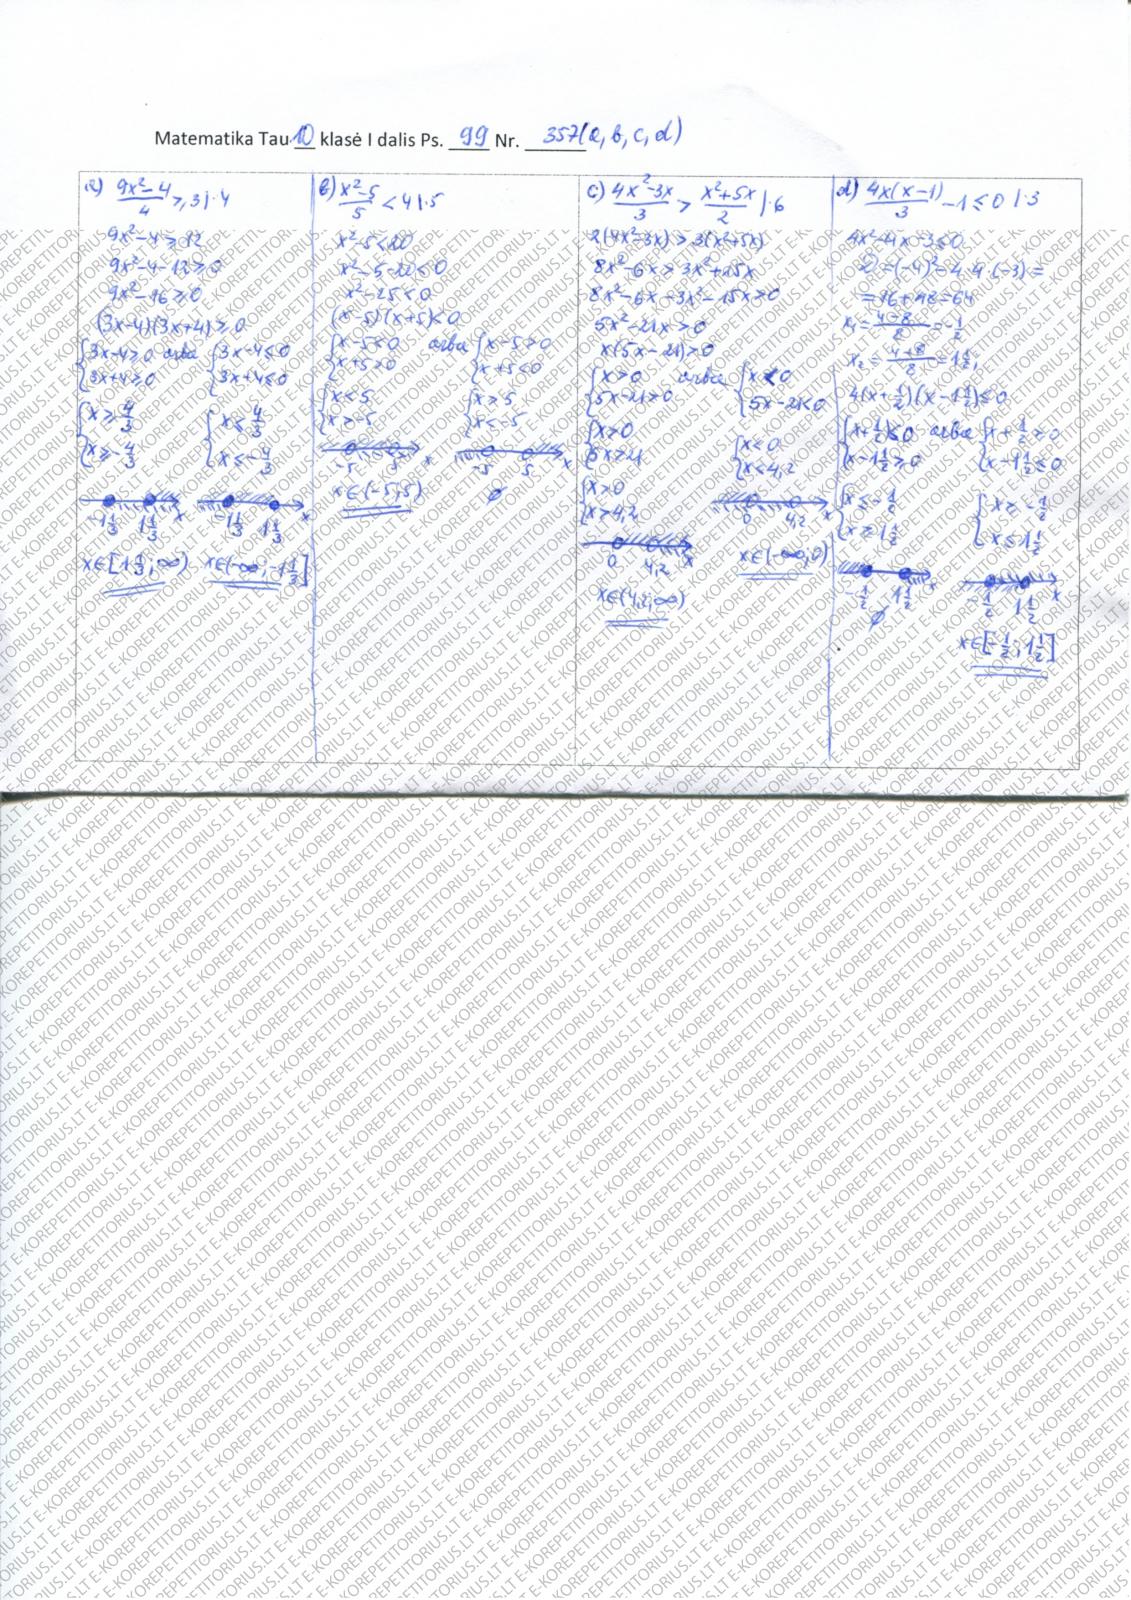 Matematika Tau 10 klasė I dalis Ps. 99 Nr. 357(a, b, c, d)
a) (9x²-4)/4 ≥ 3 |·4
9x²-4 ≥ 12
9x²-4-12 ≥ 0
9x²-16 ≥ 0
(3x-4)(3x+4) ≥ 0
{3x-4 ≥ 0 arba {3x-4 ≤ 0
{3x+4 ≥ 0 {3x+4 ≤ 0
{x ≥ 4/3 {x ≤ 4/3
{x ≥ -4/3 {x ≤ -4/3
-1 1/3 1 1/3 x -1 1/3 1 1/3 x
x∈[1 1/3; ∞) x∈(-∞; -1 1/3]
b) (x²-5)/5 < 4 |·5
x²-5 < 20
x²-5-20 < 0
x²-25 < 0
(x-5)(x+5) < 0
{x-5 < 0 arba {x-5 > 0
{x+5 > 0 {x+5 < 0
{x < 5 {x > 5
{x > -5 {x < -5
-5 5 x -5 5 x
x∈(-5; 5) ∅
c) (4x²-3x)/3 > (x²+5x)/2 |·6
2(4x²-3x) > 3(x²+5x)
8x²-6x > 3x²+15x
8x²-6x-3x²-15x > 0
5x²-21x > 0
x(5x-21) > 0
{x > 0 arba {x < 0
{5x-21 > 0 {5x-21 < 0
{x > 0 {x < 0
{5x > 21 {x < 4,2
{x > 0
{x > 4,2
0 4,2 x 0 4,2 x
x∈(4,2; ∞) x∈(-∞; 0)
d) 4x(x-1)/3 -1 ≤ 0 |·3
4x²-4x-3 ≤ 0
D=(-4)²-4·4·(-3)=
=16+48=64
x₁=(4-8)/8=-1/2
x₂=(4+8)/8=1 1/2;
4(x+1/2)(x-1 1/2) ≤ 0
{x+1/2 ≤ 0 arba {x+1/2 ≥ 0
{x-1 1/2 ≥ 0 {x-1 1/2 ≤ 0
{x ≤ -1/2 {x ≥ -1/2
{x ≥ 1 1/2 {x ≤ 1 1/2
-1/2 1 1/2 x -1/2 1 1/2 x
∅
x∈[-1/2; 1 1/2]
E-KOREPETITORIUS.LT